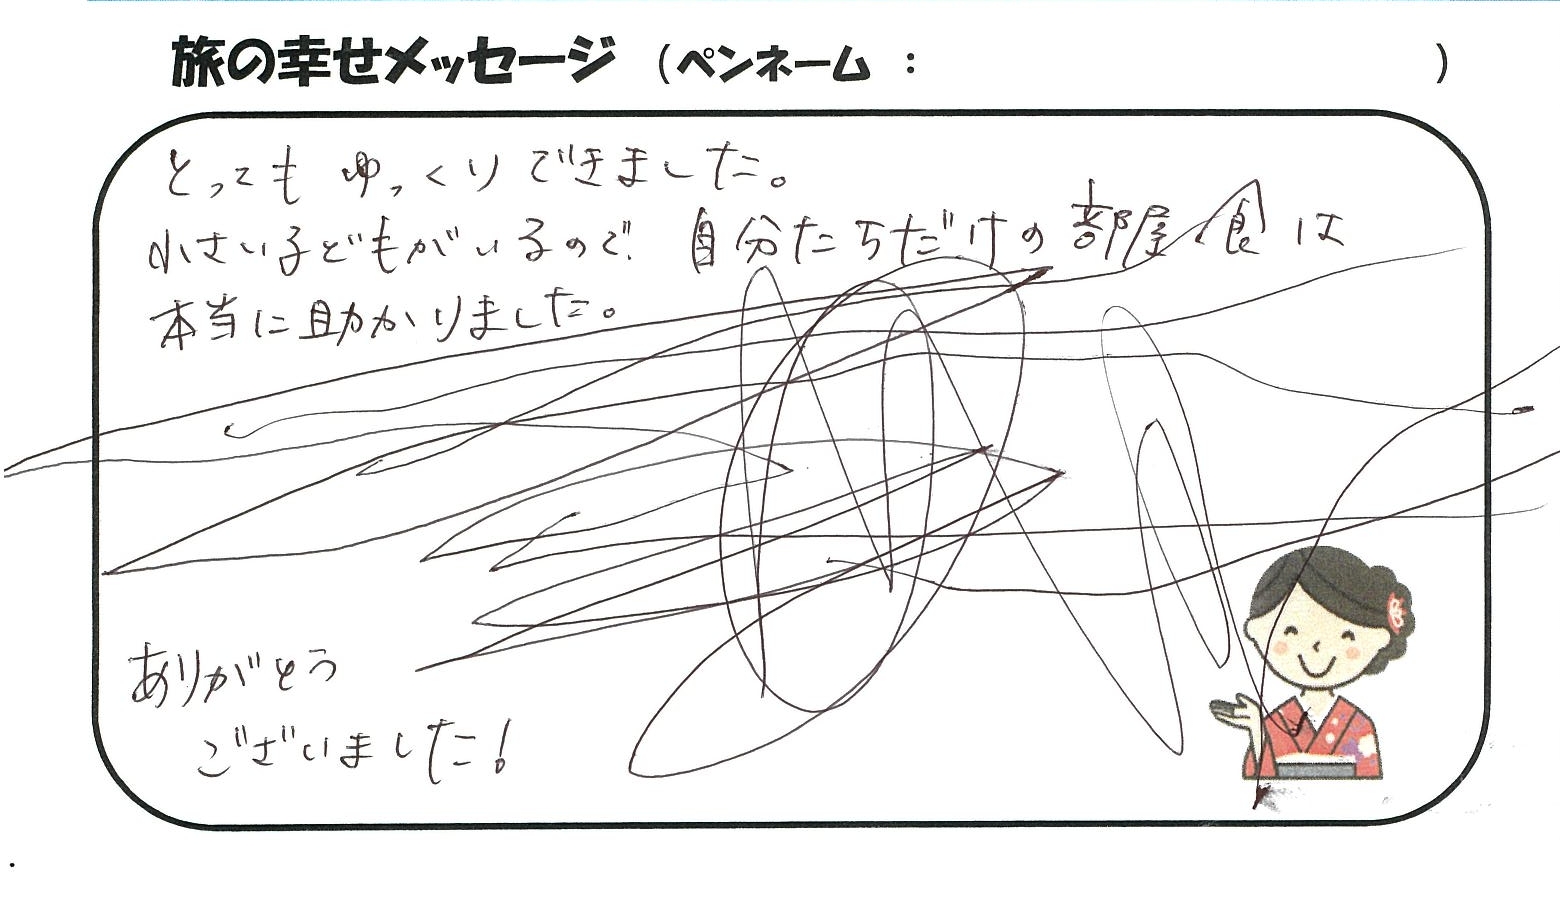 旅の幸せメッセージ (ペンネーム : )
とってもゆっくりできました。
小さい子どもがいるので、自分たちだけの部屋食は
本当に助かりました。
ありがとう
ございました!